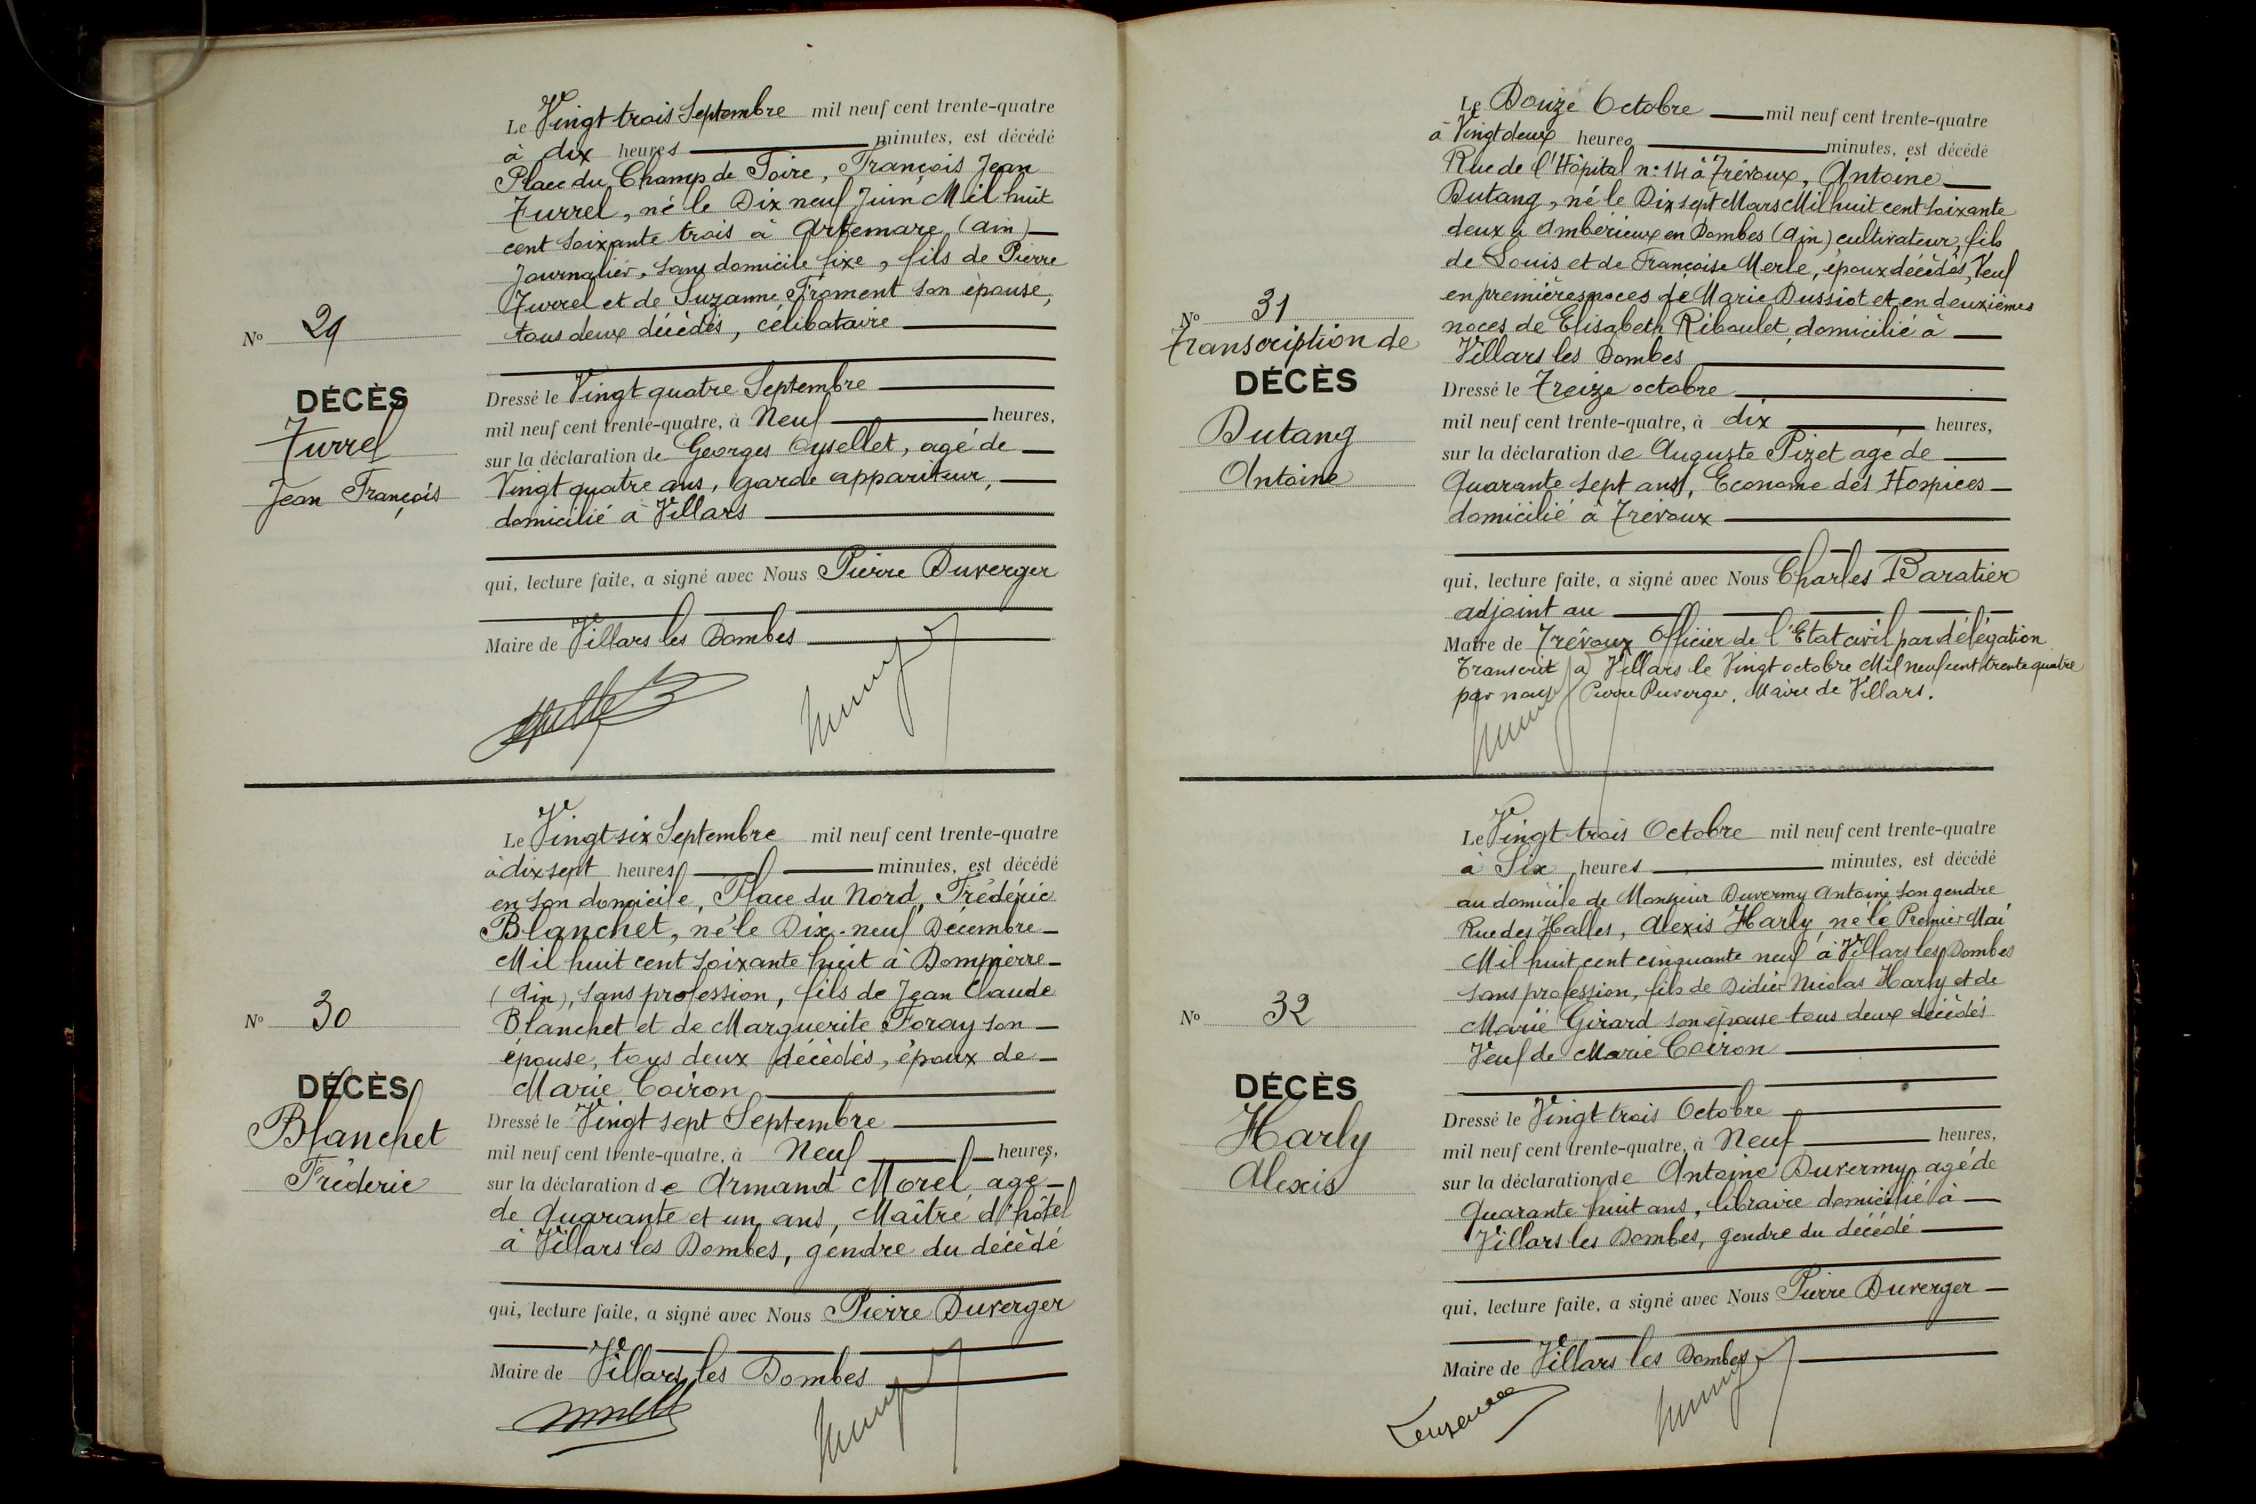 Le Vingt trois Septembre mil neuf cent trente-quatre
à dix heures minutes, est décédé
Place du Champ de Foire, François Jean
Turrel, né le Dix neuf Juin Mil huit
cent soixante trois à Artemare (Ain)
Journalier, sans domicile fixe, fils de Pierre
Turrel et de Suzanne Froment son épouse,
tous deux décédés, célibataire
No 29
DÉCÈS
Turrel
Jean François
Dressé le Vingt quatre Septembre
mil neuf cent trente-quatre, à Neuf heures,
sur la déclaration de Georges Oysellet, agé de
Vingt quatre ans, garde appariteur,
domicilié à Villars
qui, lecture faite, a signé avec Nous Pierre Duverger
Maire de Villars les Dombes
Le Vingt six Septembre mil neuf cent trente-quatre
à dix sept heures minutes, est décédé
en son domicile, Place du Nord, Frédéric
Blanchet, né le Dix-neuf Décembre
Mil huit cent soixante huit à Dompierre
(Ain), sans profession, fils de Jean Claude
Blanchet et de Marguerite Foray son
épouse, tous deux décédés, époux de
Marie Coiron
No 30
DÉCÈS
Blanchet
Fréderic
Dressé le Vingt sept Septembre
mil neuf cent trente-quatre, à Neuf heures,
sur la déclaration de Armand Morel agé
de quarante et un ans, Maître d'hôtel
à Villars les Dombes, gendre du décédé
qui, lecture faite, a signé avec Nous Pierre Duverger
Maire de Villars les Dombes
Le Douze Octobre mil neuf cent trente-quatre
à Vingt deux heures minutes, est décédé
Rue de l'Hôpital n: 14 à Trévoux, Antoine
Dutang, né le Dix sept Mars Mil huit cent soixante
deux à Ambérieux en Dombes (Ain) cultivateur, fils
de Louis et de Françoise Merle, époux décédés, Veuf
en premières noces de Marie Dussiot et en deuxièmes
noces de Elisabeth Riboulet, domicilié à
Villars les Dombes
No 31
Transcription de
DÉCÈS
Dutang
Antoine
Dressé le Treize octobre
mil neuf cent trente-quatre, à dix heures,
sur la déclaration de Auguste Pizet agé de
Quarante sept ans, Econome des Hospices
domicilié à Trévoux
qui, lecture faite, a signé avec Nous Charles Baratier
adjoint au
Maire de Trévoux Officier de l'Etat civil par délégation
Transcrit à Villars le Vingt octobre Mil neuf cent trente quatre
par nous Pierre Duverger, Maire de Villars.
Le Vingt trois Octobre mil neuf cent trente-quatre
à Six heures minutes, est décédé
au domicile de Monsieur Duvermy Antoine son gendre
Rue des Halles, Alexis Harly né le Premier Mai
Mil huit cent cinquante neuf à Villars les Dombes
sans profession, fils de Didier Nicolas Harly et de
Marie Girard son épouse tous deux décédés
Veuf de Marie Coiron
No 32
DÉCÈS
Harly
Alexis
Dressé le Vingt trois Octobre
mil neuf cent trente-quatre, à Neuf heures,
sur la déclaration de Antoine Duvermy agé de
Quarante huit ans, libraire domicilié à
Villars les Dombes, gendre du décédé
qui, lecture faite, a signé avec Nous Pierre Duverger
Maire de Villars les Dombes